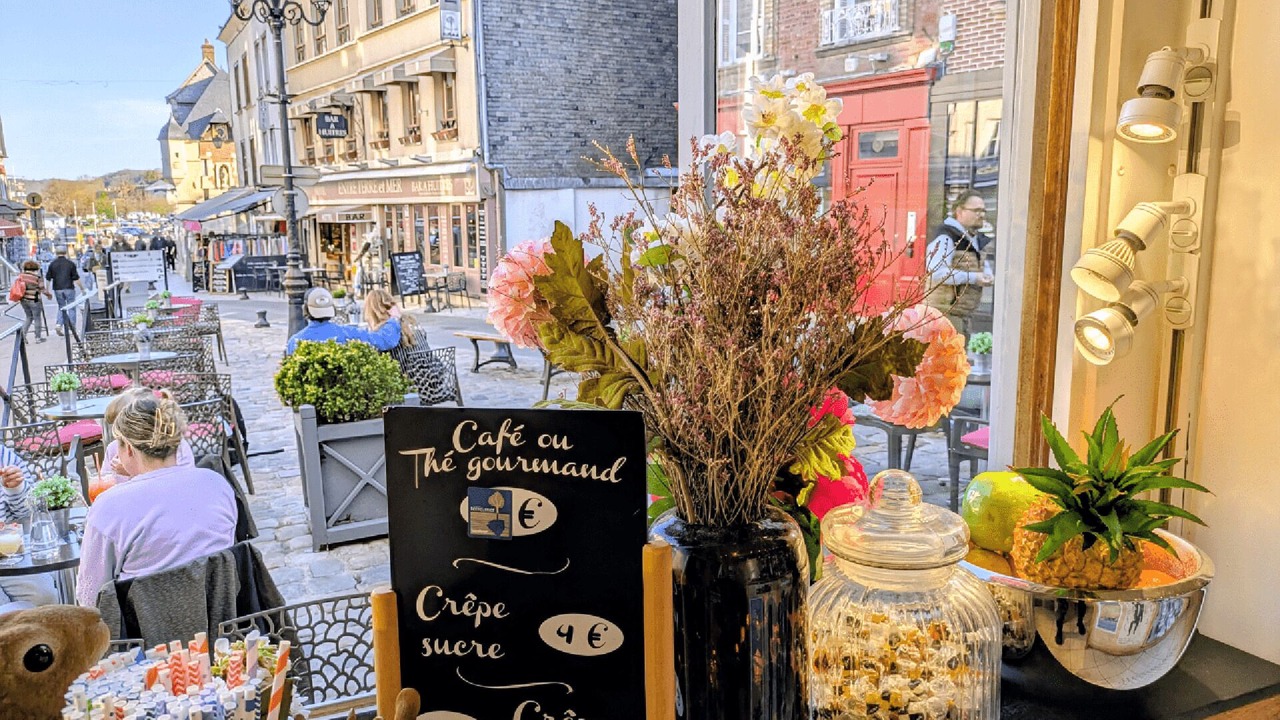 BAR
À
HUITRES
ENTRE TERRE et MER
BAR À HUITRES
BAR
Café ou
Thé gourmand
€
Crêpe
sucre
4 €
Crê